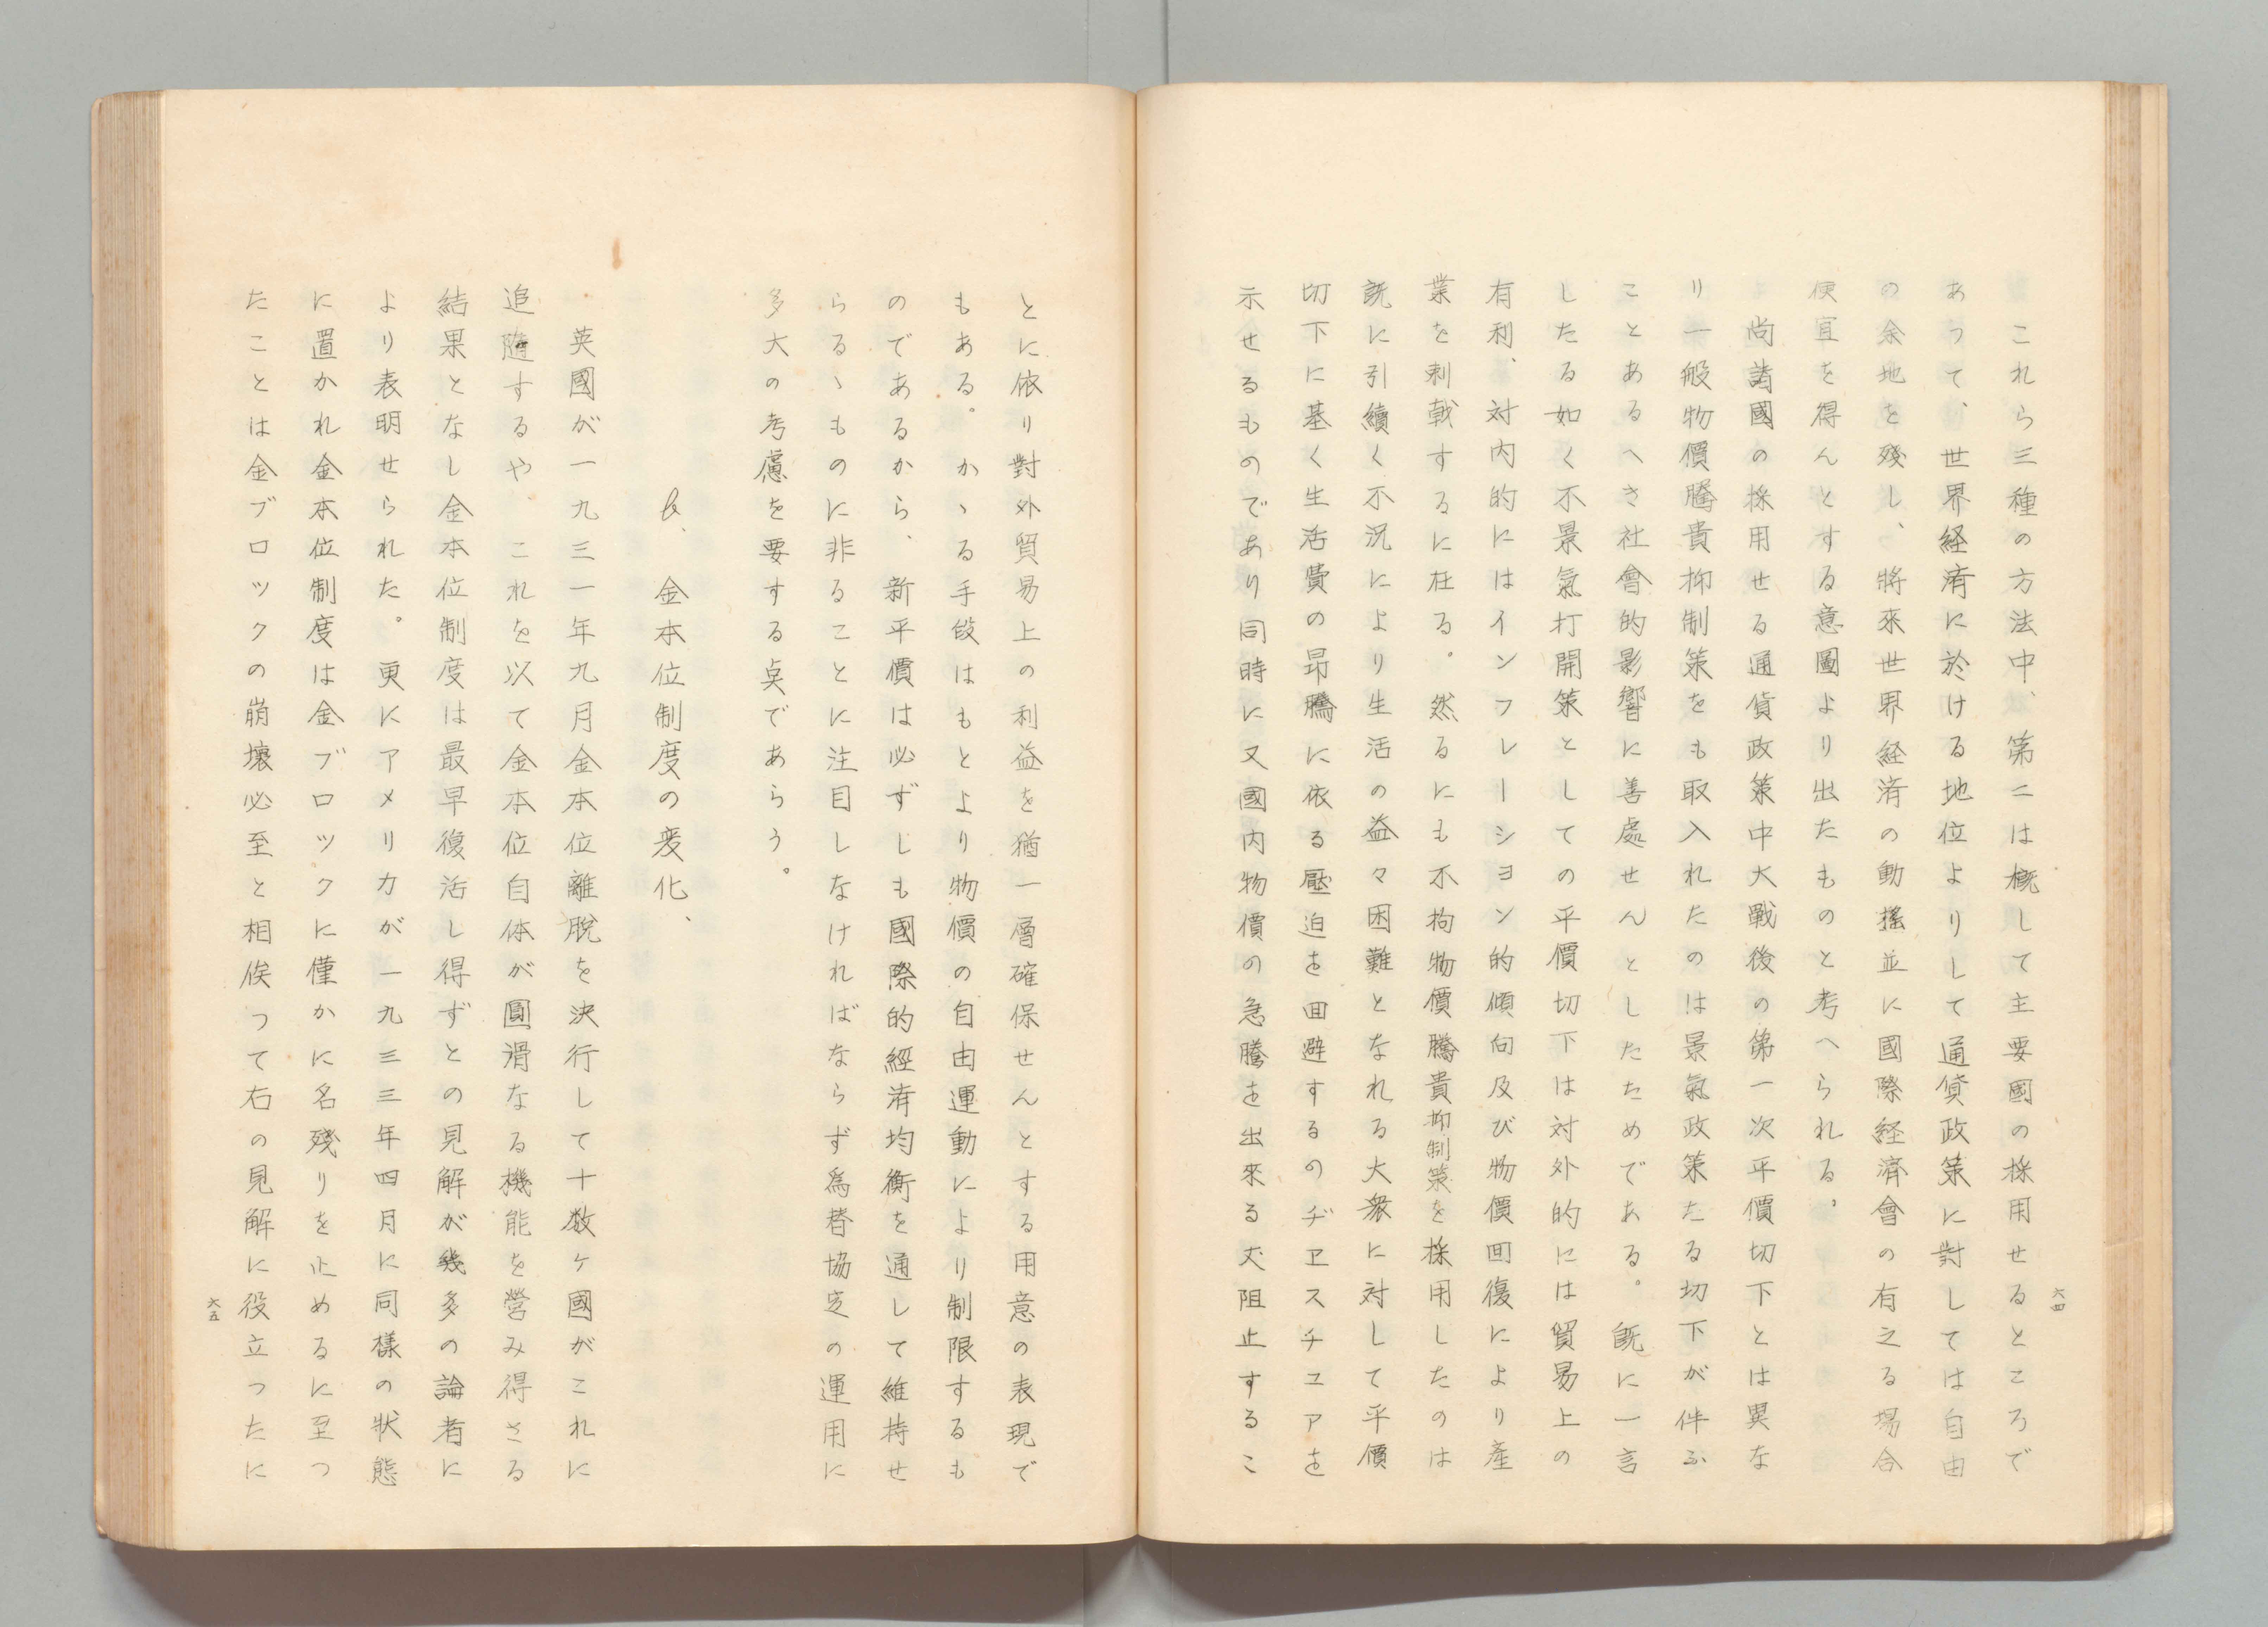 これら三種の方法中、第二は概して主要國の採用せるところで
あつて、世界経済に於ける地位よりして通貨政策に對しては自由
の余地を殘し、將來世界経済の動搖並に國際経濟會の有之る場合
便宜を得んとする意圖より出たものと考へられる。
尚諸國の採用せる通貨政策中大戰後の第一次平價切下とは異な
り一般物價騰貴抑制策をも取入れたのは景氣政策たる切下が伴ふ
ことあるへき社會的影響に善處せんとしたためである。既に一言
したる如く不景氣打開策としての平價切下は対外的には貿易上の
有利、対内的にはインフレーシヨン的傾向及び物價囬復により産
業を刺戟するに在る。然るにも不拘物價騰貴抑制策を採用したのは
既に引續く不況により生活の益々困難となれる大衆に対して平價
切下に基く生活費の昂騰に依る壓迫を囬避するのヂヱスチユアを
示せるものであり同時に又國内物價の急騰を出來る丈阻止するこ
六四
とに依り對外貿易上の利益を猶一層確保せんとする用意の表現で
もある。かゝる手段はもとより物價の自由運動により制限するも
のであるから、新平價は必ずしも國際的經済均衡を通して維持せ
らるゝものに非ることに注目しなければならず為替協定の運用に
多大の考慮を要する点であらう。
b、金本位制度の変化、
英國が一九三一年九月金本位離脱を決行して十数ヶ國がこれに
追隨するや、これを以て金本位自体が圓滑なる機能を営み得さる
結果となし金本位制度は最早復活し得ずとの見解が幾多の論者に
より表明せられた。更にアメリカが一九三三年四月に同様の狀態
に置かれ金本位制度は金ブロツクに僅かに名殘りを止めるに至つ
たことは金ブロツクの崩壞必至と相俟つて右の見解に役立つたに
六五